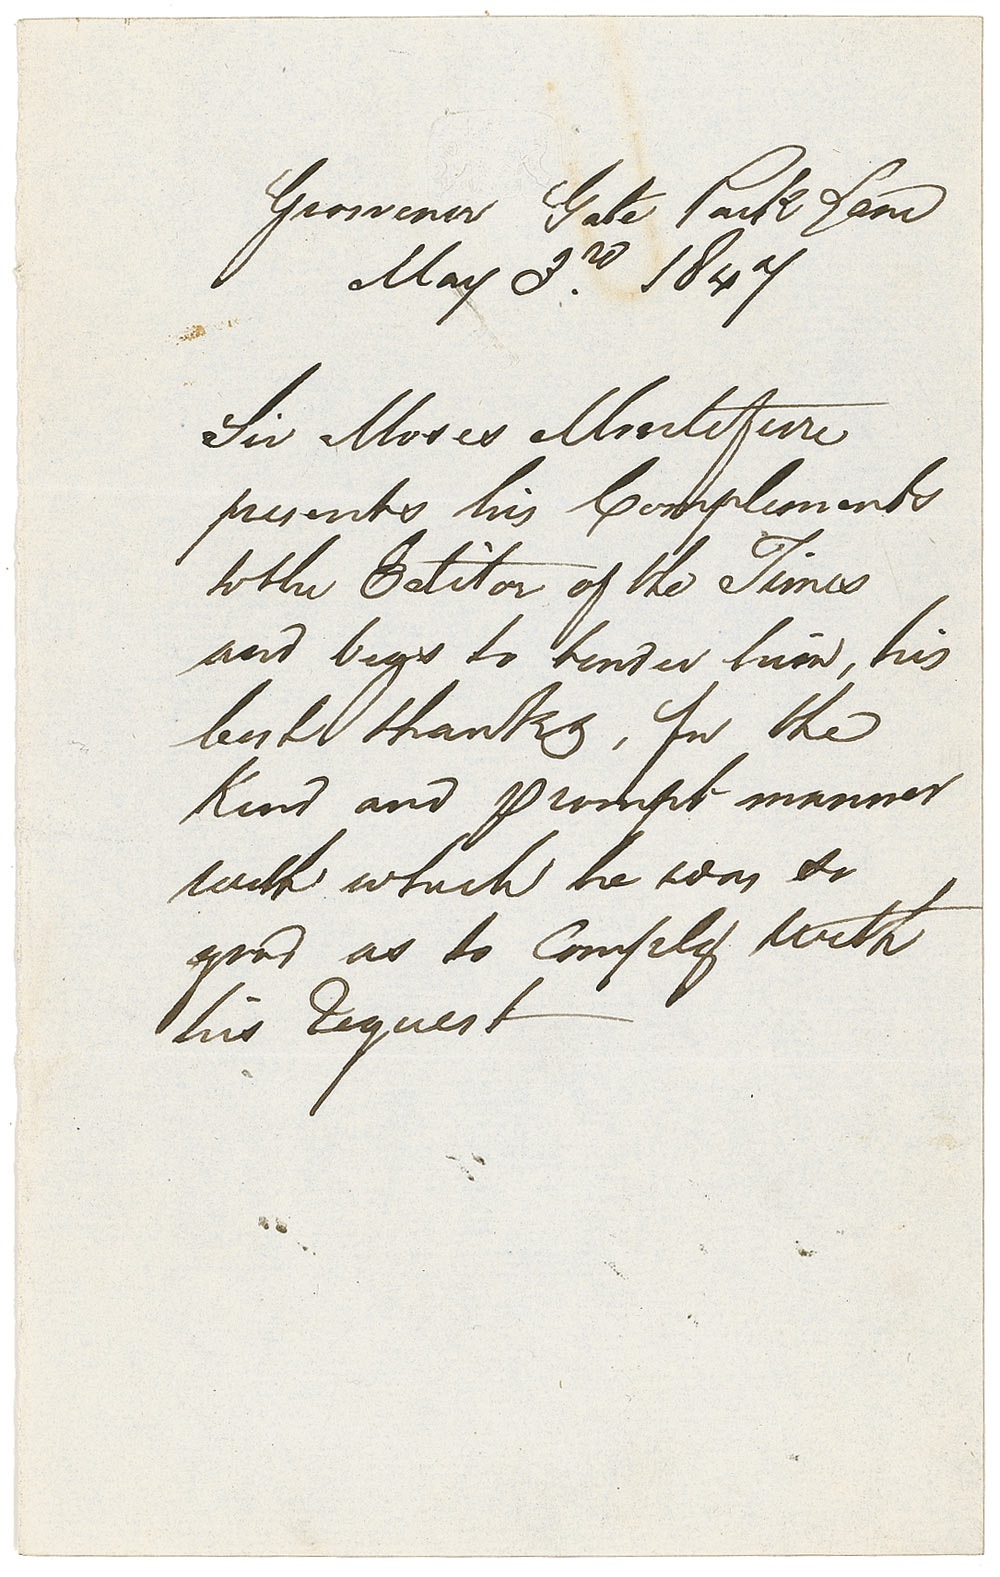 Grosvenor Gate Park Lane
May 3.rd 1847
Sir Moses Montefiore
presents his Complements
to the Editor of the Times
and begs to tender him, his
best thanks, for the
Kind and prompt manner
with which he was so
good as to Comply with
his Request